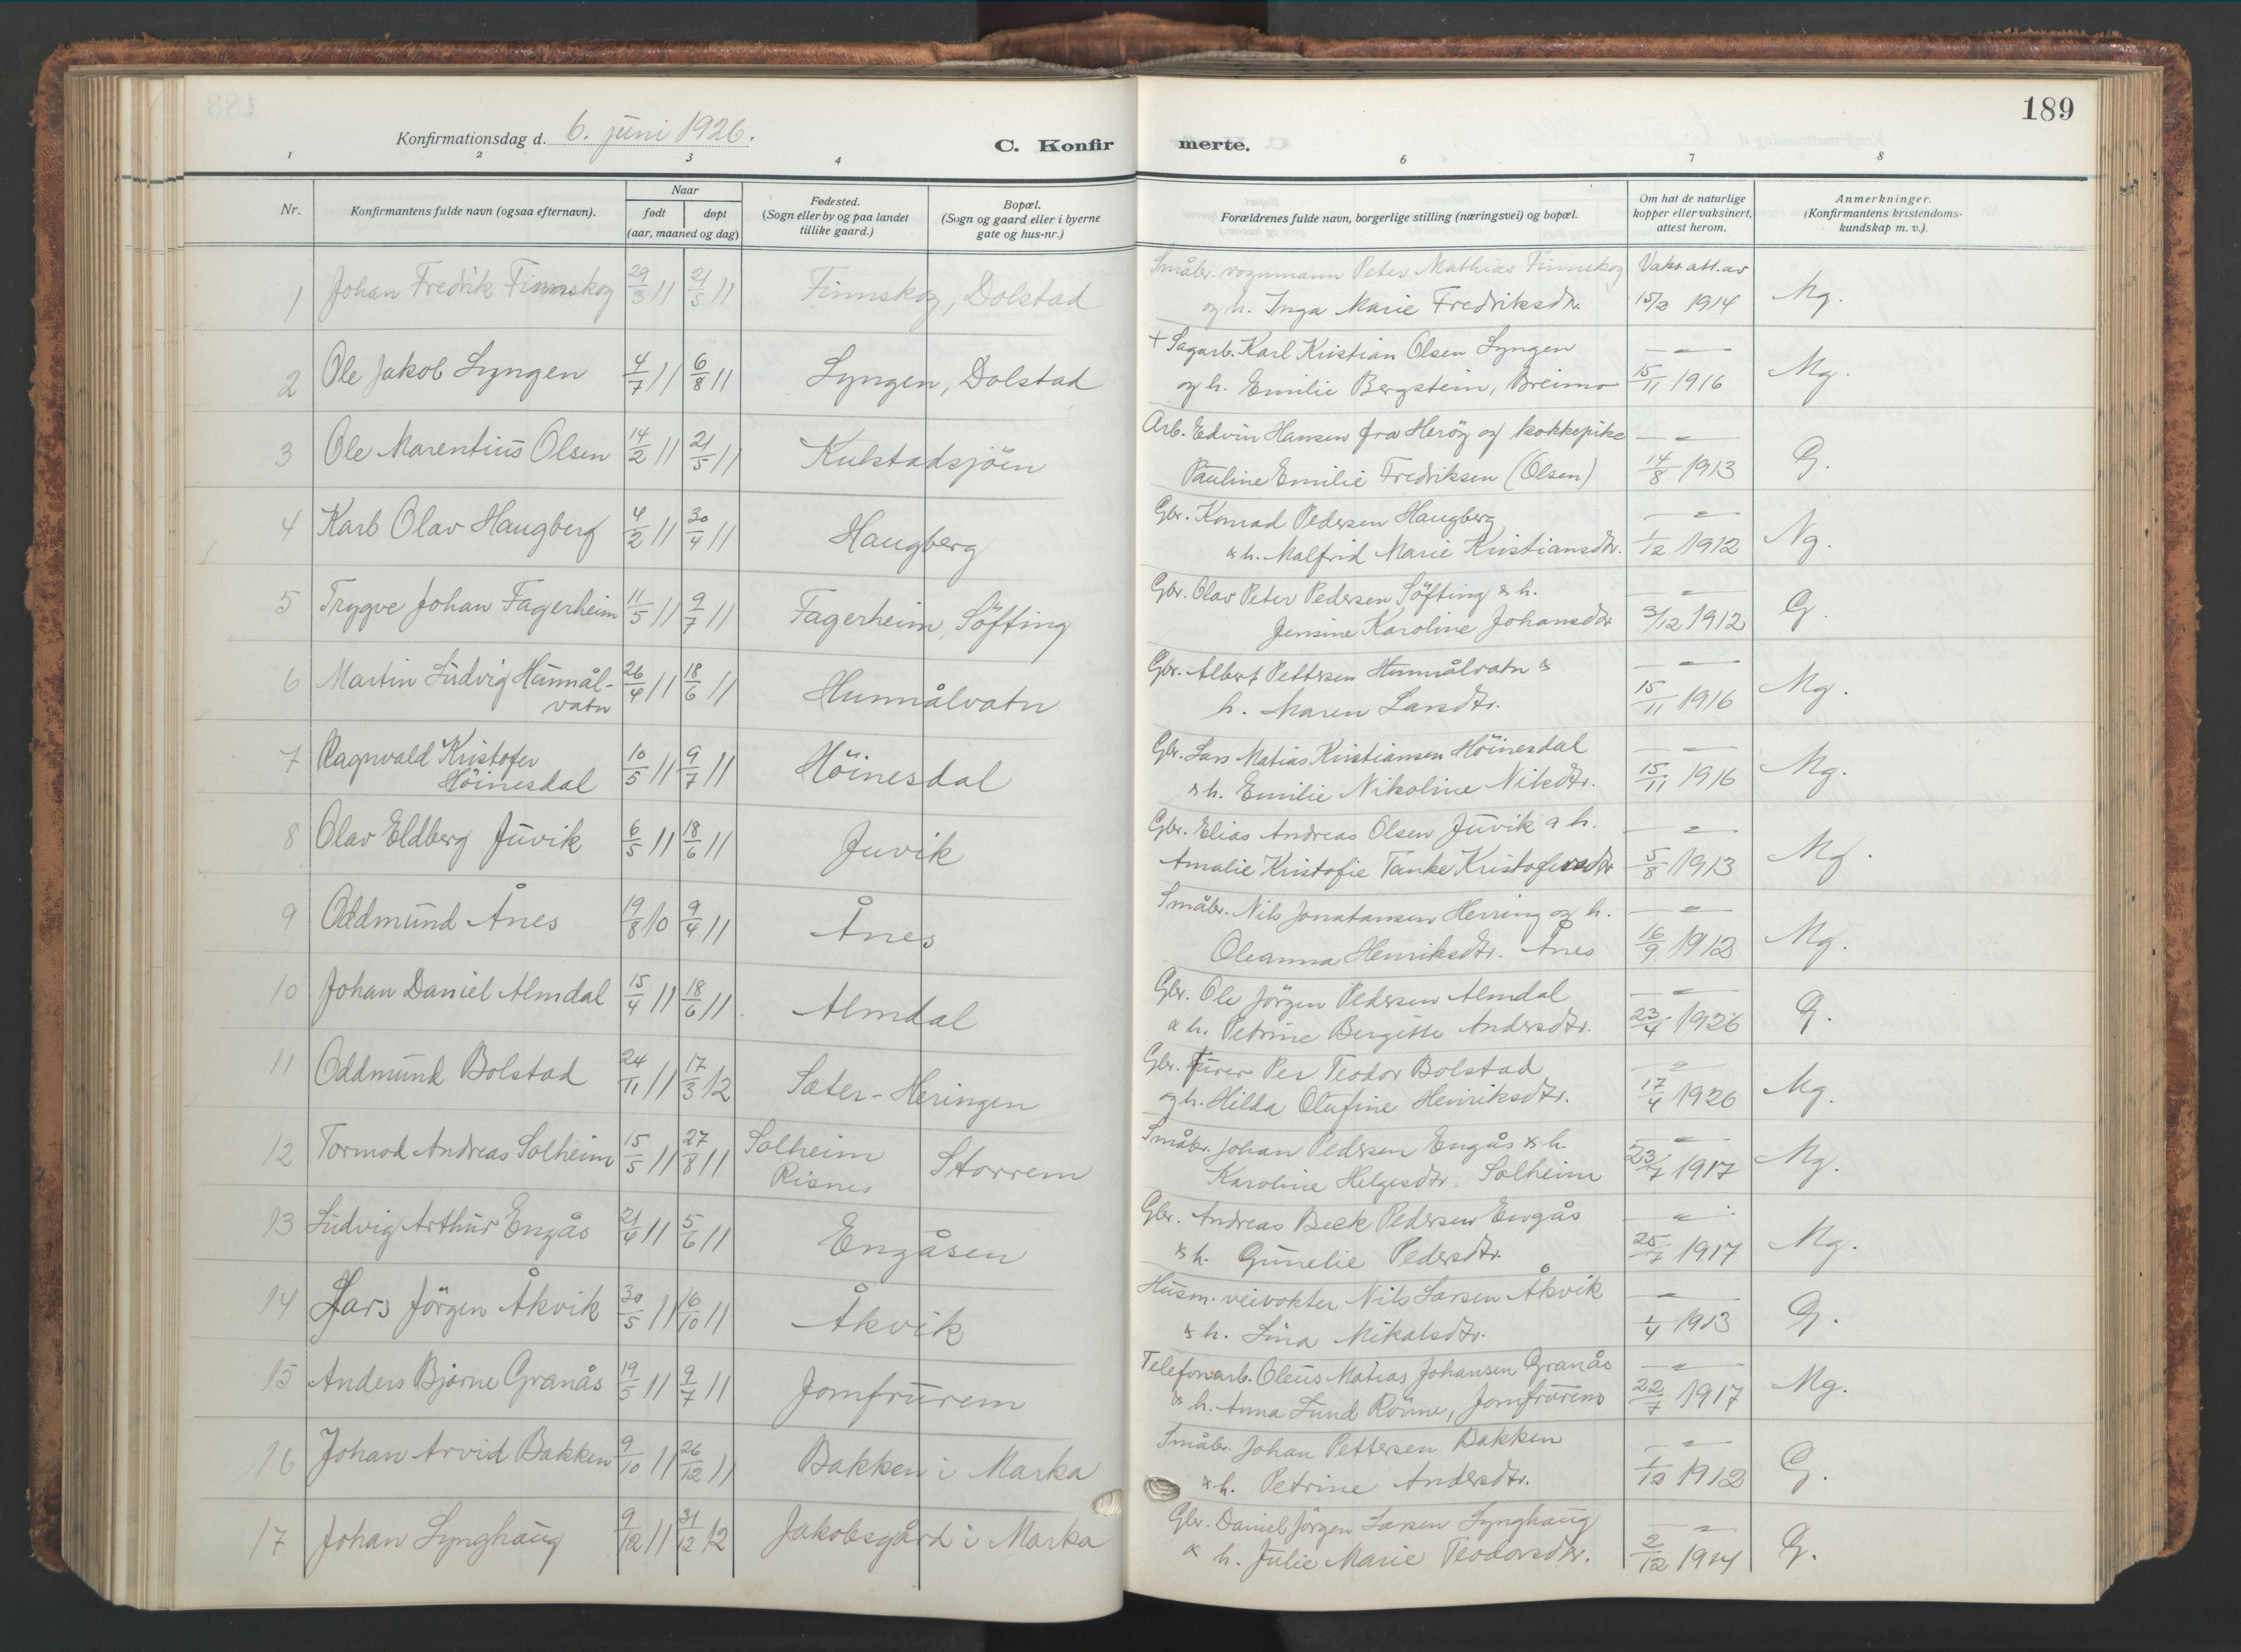 189
Konfirmationsdag d. 6. juni 1926. C. Konfirmerte.
1 2 3 4 6 7 8
Nr. Konfirmantens fulde navn (ogsaa efternavn). Naar født døpt (aar, maaned og dag) Fødested. (Sogn eller by og paa landet tillike gaard.) Bopæl. (Sogn og gaard eller i byerne gate og hus-nr.) Forældrenes fulde navn, borgerlige stilling (næringsvei) og bopæl. Om hat de naturlige kopper eller vaksinert, attest herom. Anmerkninger. (Konfirmantens kristendomskundskap m. v.).
1 Johan Fredrik Finnskog 29/3 11 21/5 11 Finnskog, Dolstad Småbr. vognmann Peter Mathias Finnskog Vaks. att. av
og h. Inga Marie Fredriksdtr. 15/2 1914 Mg.
2 Ole Jakob Lyngen 4/7 11 6/8 11 Lyngen, Dolstad + Sagarb. Karl Kristian Olsen Lyngen — " —
og h. Emilie Bergstein, Breimo 15/11 1916 Mg.
3 Ole Marentius Olsen 14/2 11 21/5 11 Kulstadsjöen Arb. Edvin Hansen fra Heröy og kokkepike — " —
Pauline Emilie Fredriksen (Olsen) 14/8 1913 G.
4 Karl Olav Haugberg 4/2 11 30/4 11 Haugberg Gbr. Konrad Pedersen Haugberg — " —
& h. Malfrid Marie Kristiansdtr. 1/12 1912 Ng.
5 Trygve Johan Fagerheim 11/5 11 9/7 11 Fagerheim, Söfting Gbr. Olav Peter Pedersen Söfting & h. — " —
Jensine Karoline Johansdtr 3/12 1912 G.
6 Martin Ludvig Hunnål- 26/4 11 18/6 11 Hunnålvatn Gbr. Albert Pettersen Hunnålvatn & — " —
vatn h. Maren Larsdtr. 15/11 1916 Mg.
7 Ragnvald Kristofer 10/5 11 9/7 11 Höinesdal Gbr. Lars Matias Kristiansen Höinesdal — " —
Höinesdal & h. Emilie Nikoline Nilsdtr. 15/11 1916 Mg.
8 Olav Eldberg Juvik 6/5 11 18/6 11 Juvik Gbr. Elias Andreas Olsen Juvik & h. — " —
Amalie Kristofie Tanke Kristofersdtr 5/8 1913 Mg.
9 Oddmund Ånes 19/8 10 9/4 11 Ånes Småbr. Nils Jonatansen Herring og h. — " —
Oleanna Henriksdtr. Ånes 16/9 1912 Mg.
10 Johan Daniel Almdal 15/4 11 18/6 11 Almdal Gbr. Ole Jörgen Pedersen Almdal — " —
& h. Petrine Bergitte Andersdtr. 23/4 1926 G.
11 Oddmund Bolstad 24/11 11 17/3 12 Sæter-Heringen Gbr. Furer Per Teodor Bolstad — " —
og h. Hilda Olufine Henriksdtr. 17/4 1926 Mg.
12 Tormod Andreas Solheim 15/5 11 27/8 11 Solheim Storrem Småbr. Johan Pedersen Engås & h. — " —
Risnes Karoline Helgesdtr. Solheim 23/7 1917 Mg.
13 Ludvig Arthur Engås 21/4 11 5/6 11 Engåsen Gbr. Andreas Beck Pedersen Engås — " —
& h. Gunelie Pedersdtr. 25/7 1917 Mg.
14 Lars Jörgen Åkvik 30/5 11 16/10 11 Åkvik Husm. veivokter Nils Larsen Åkvik — " —
& h. Lina Mikalsdtr. 1/4 1913 G.
15 Anders Bjarne Granås 19/5 11 9/7 11 Jomfrurem Telefonarb. Oleus Matias Johansen Granås — " —
& h. Anna Lund Rönne, Jomfrurem 22/7 1917 Mg.
16 Johan Arvid Bakken 9/10 11 26/12 11 Bakken i Marka Småbr. Johan Pettersen Bakken — " —
& h. Petrine Andersdtr. 1/12 1912 G.
17 Johan Lynghaug 9/12 11 31/12 12 Jakobsgård i Marka Gbr. Daniel Jörgen Larsen Lynghaug — " —
& h. Julie Marie Teodorsdtr. 2/12 1914 G.